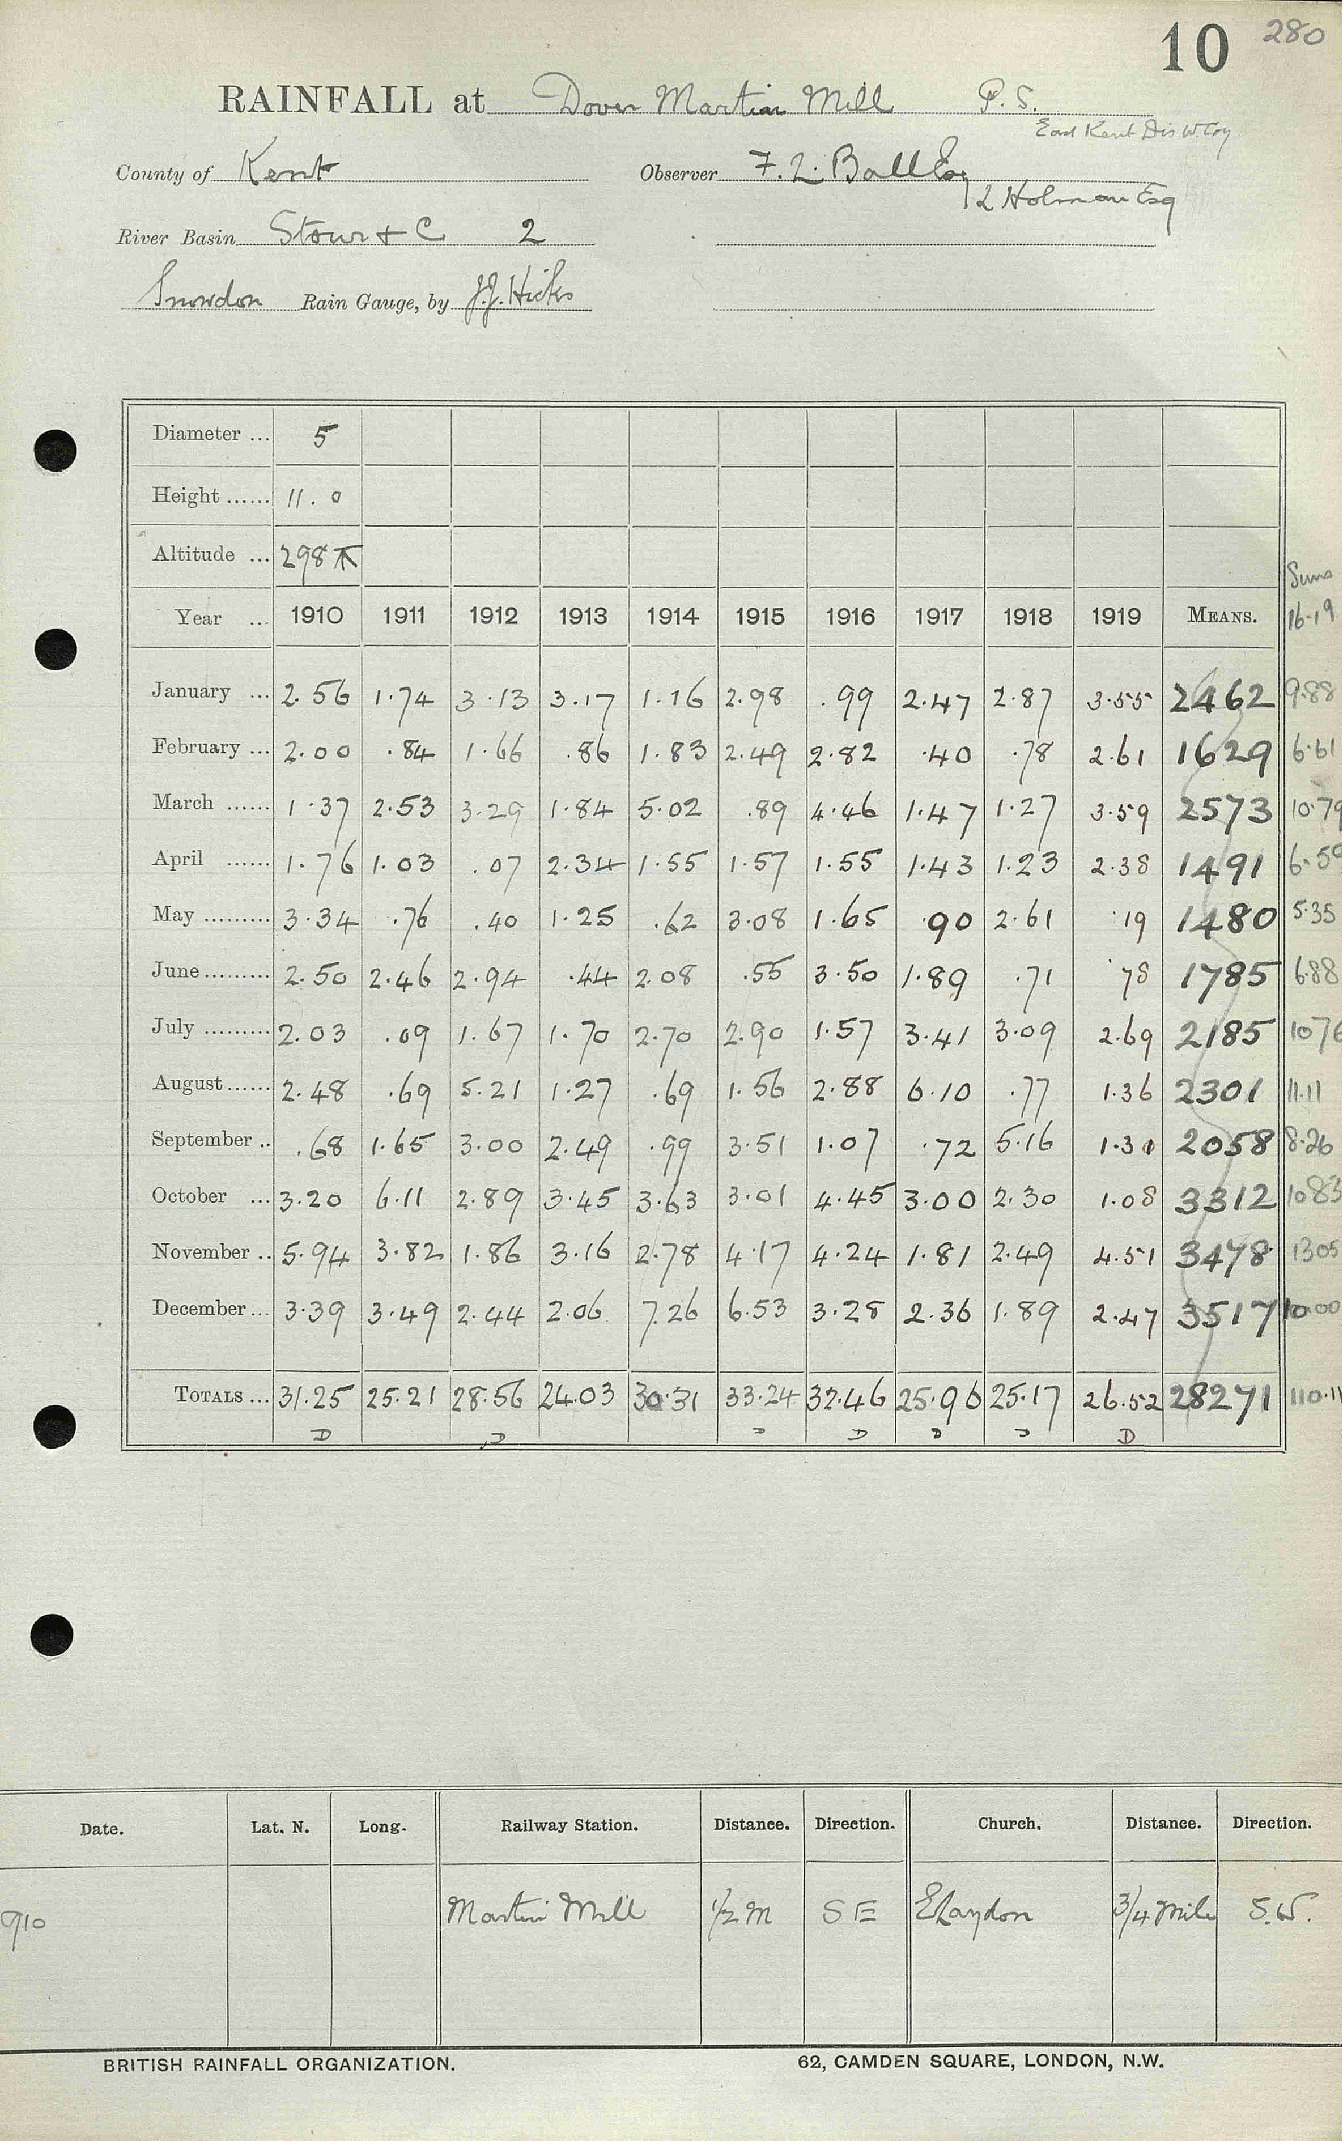 10 280
RAINFALL at Dover Martin Mill P.S.
East Kent Dis W Coy
County of Kent Observer F. L. Ball Esq
L Holman Esq
River Basin Stour & C 2
Snowdon Rain Gauge, by J.J. Hicks
Diameter ... 5
Height ...... 11. 0
Altitude ... 298
Sums
Year ... 1910 1911 1912 1913 1914 1915 1916 1917 1918 1919 MEANS. 16-19
January ... 2.56 1.74 3.13 3.17 1.16 2.98 .99 2.47 2.87 3.55 2462 9.88
February ... 2.00 .84 1.66 .86 1.83 2.49 2.82 .40 .78 2.61 1629 6.61
March ...... 1.37 2.53 3.29 1.84 5.02 .89 4.46 1.47 1.27 3.59 2573 10.79
April ...... 1.76 1.03 .07 2.34 1.55 1.57 1.55 1.43 1.23 2.38 1491 6.59
May ......... 3.34 .76 .40 1.25 .62 3.08 1.65 .90 2.61 .19 1480 5.35
June ......... 2.50 2.46 2.94 .44 2.08 .55 3.50 1.89 .71 .78 1785 6.88
July ......... 2.03 .09 1.67 1.70 2.70 2.90 1.57 3.41 3.09 2.69 2185 1076
August ...... 2.48 .69 5.21 1.27 .69 1.56 2.88 6.10 .77 1.36 2301 11.11
September .. .68 1.65 3.00 2.49 .99 3.51 1.07 .72 5.16 1.31 2058 8.26
October ... 3.20 6.11 2.89 3.45 3.63 3.01 4.45 3.00 2.30 1.08 3312 1083
November .. 5.94 3.82 1.86 3.16 2.78 4.17 4.24 1.81 2.49 4.51 3478 1305
December ... 3.39 3.49 2.44 2.06 7.26 6.53 3.28 2.36 1.89 2.47 3517 10.00
TOTALS ... 31.25 25.21 28.56 24.03 30.31 33.24 32.46 25.96 25.17 26.52 28271 110.11
D D D D D D D
Date. Lat. N. Long. Railway Station. Distance. Direction. Church. Distance. Direction.
910 Martin Mill 1/2 M SE 3/4 Mile S.W.
BRITISH RAINFALL ORGANIZATION. 62, CAMDEN SQUARE, LONDON, N.W.